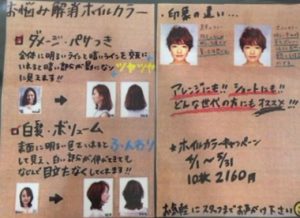 お悩み解消ホイルカラー
ダメージ・パサつき
全体に明るいラインと暗いラインを交互に
いれると暗い部分が影になり
ツヤツヤ
に見えます!!
白髪・ボリューム
表面に明るい毛をいれます
ふんわり
して見え、白い部分が伸びてきても
なじんで目立たなくしてくれます!!
印象の違い…
アレンジにも!! ショートにも!!
どんな世代の方にもオススメ!!!
*ホイルカラーキャンペーン
4/1〜5/31
10枚 2160円
お気軽にスタッフまでお声がけ下さい